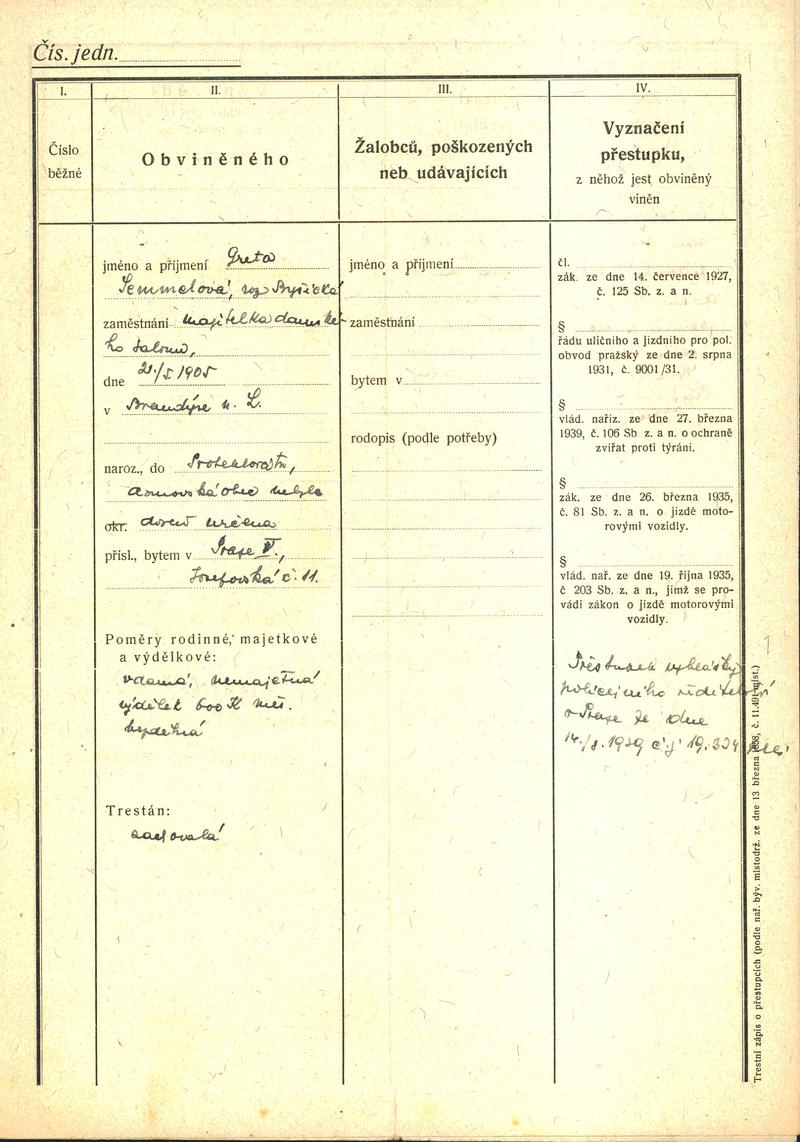 Čís. jedn.
I.
II.
III.
IV.
Číslo
běžné
Obviněného
Žalobců, poškozených
neb udávajících
Vyznačení
přestupku,
z něhož jest obviněný
viněn
jméno a příjmení Greta
Semmelová, roz.
zaměstnání majitelka dámské-
ho salonu,
dne 21/5 1905
v Brandýse n. L.
naroz., do Protektorátu,
domovská obec nebyla
okr. dosud určena
přísl., bytem v Praze V.,
Josefovská č. 11.
Poměry rodinné, majetkové
a výdělkové:
vdaná, nemajetná
výdělek 600 K měs.
bezdětná
Trestán:
zachovalá
jméno a příjmení
zaměstnání
bytem v
rodopis (podle potřeby)
čl.
zák. ze dne 14. července 1927,
č. 125 Sb. z. a n.
§
řádu uličního a jízdního pro pol.
obvod pražský ze dne 2. srpna
1931, č. 9001/31.
§
vlád. naříz. ze dne 27. března
1939, č. 106 Sb z. a n. o ochraně
zvířat proti týrání.
§
zák. ze dne 26. března 1935,
č. 81 Sb. z. a n. o jízdě moto-
rovými vozidly.
§
vlád. nař. ze dne 19. října 1935,
č 203 Sb. z. a n., jímž se pro-
vádí zákon o jízdě motorovými
vozidly.
Přestupek vyhlášky
policejního ředitelství
v Praze ze dne
14./8. 1939 čj 19.334
Trestní zápis o přestupcích (podle nař. býv. místodrž. ze dne 13 března č. 11.491 míst.)
1